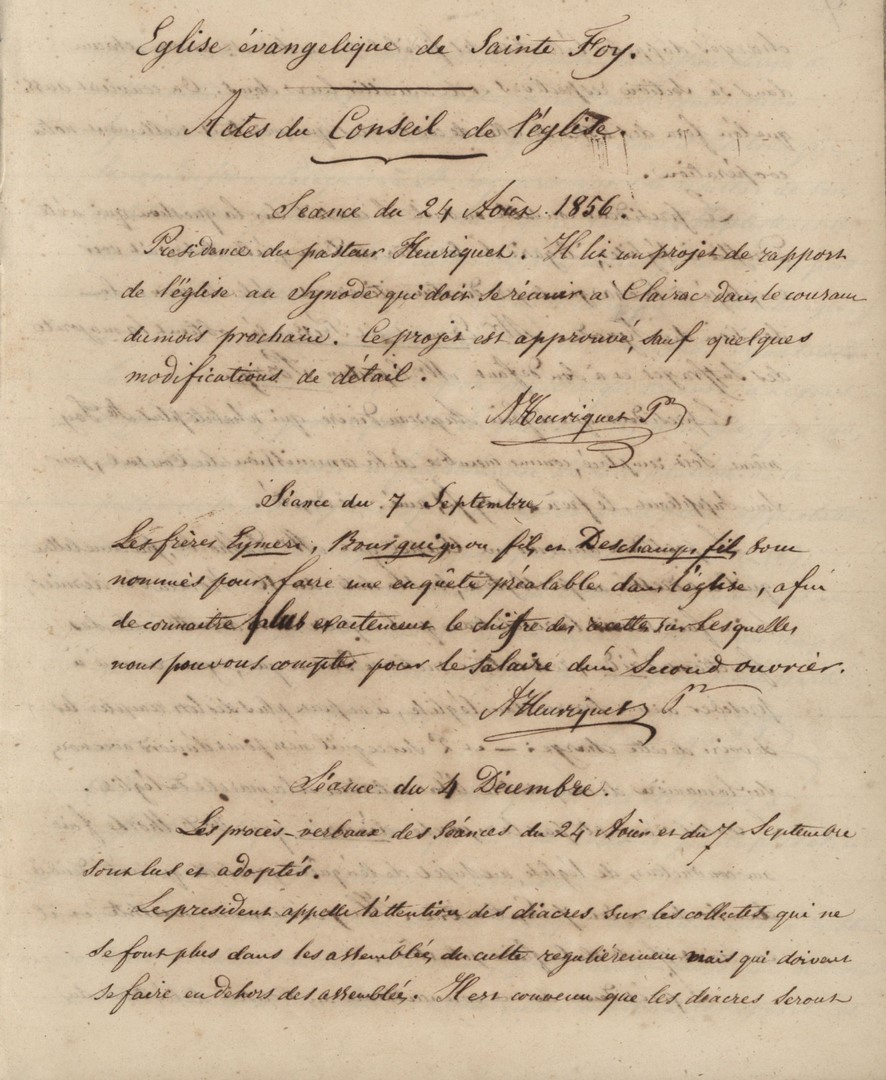 Eglise évangelique de Sainte Foy.
Actes du Conseil de l'église.
Séance du 24 Août 1856.
Présidence du pasteur Henriquet. Il lit un projet de rapport
de l'église au Synode qui doit se réunir à Clairac dans le courant
du mois prochain. Ce projet est approuvé, sauf quelques
modifications de détail.
A Henriquet Pr
Séance du 7 Septembre
Les frères Eymeri, Bourguignon fils et Deschamps fils sont
nommés pour faire une enquête préalable dans l'église, afin
de connaitre plus exactement le chiffre des recettes sur lesquelles
nous pouvons compter pour le salaire d'un second ouvrier.
A Henriquet Pr
Séance du 4 Décembre.
Les procès-verbaux des Séances du 24 Août et du 7 Septembre
sont lus et adoptés.
Le president appelle l'attention des diacres sur les collectes qui ne
se font plus dans les assemblées du culte regulièrement mais qui doivent
se faire en dehors des assemblées. Il est convenu que les diacres seront